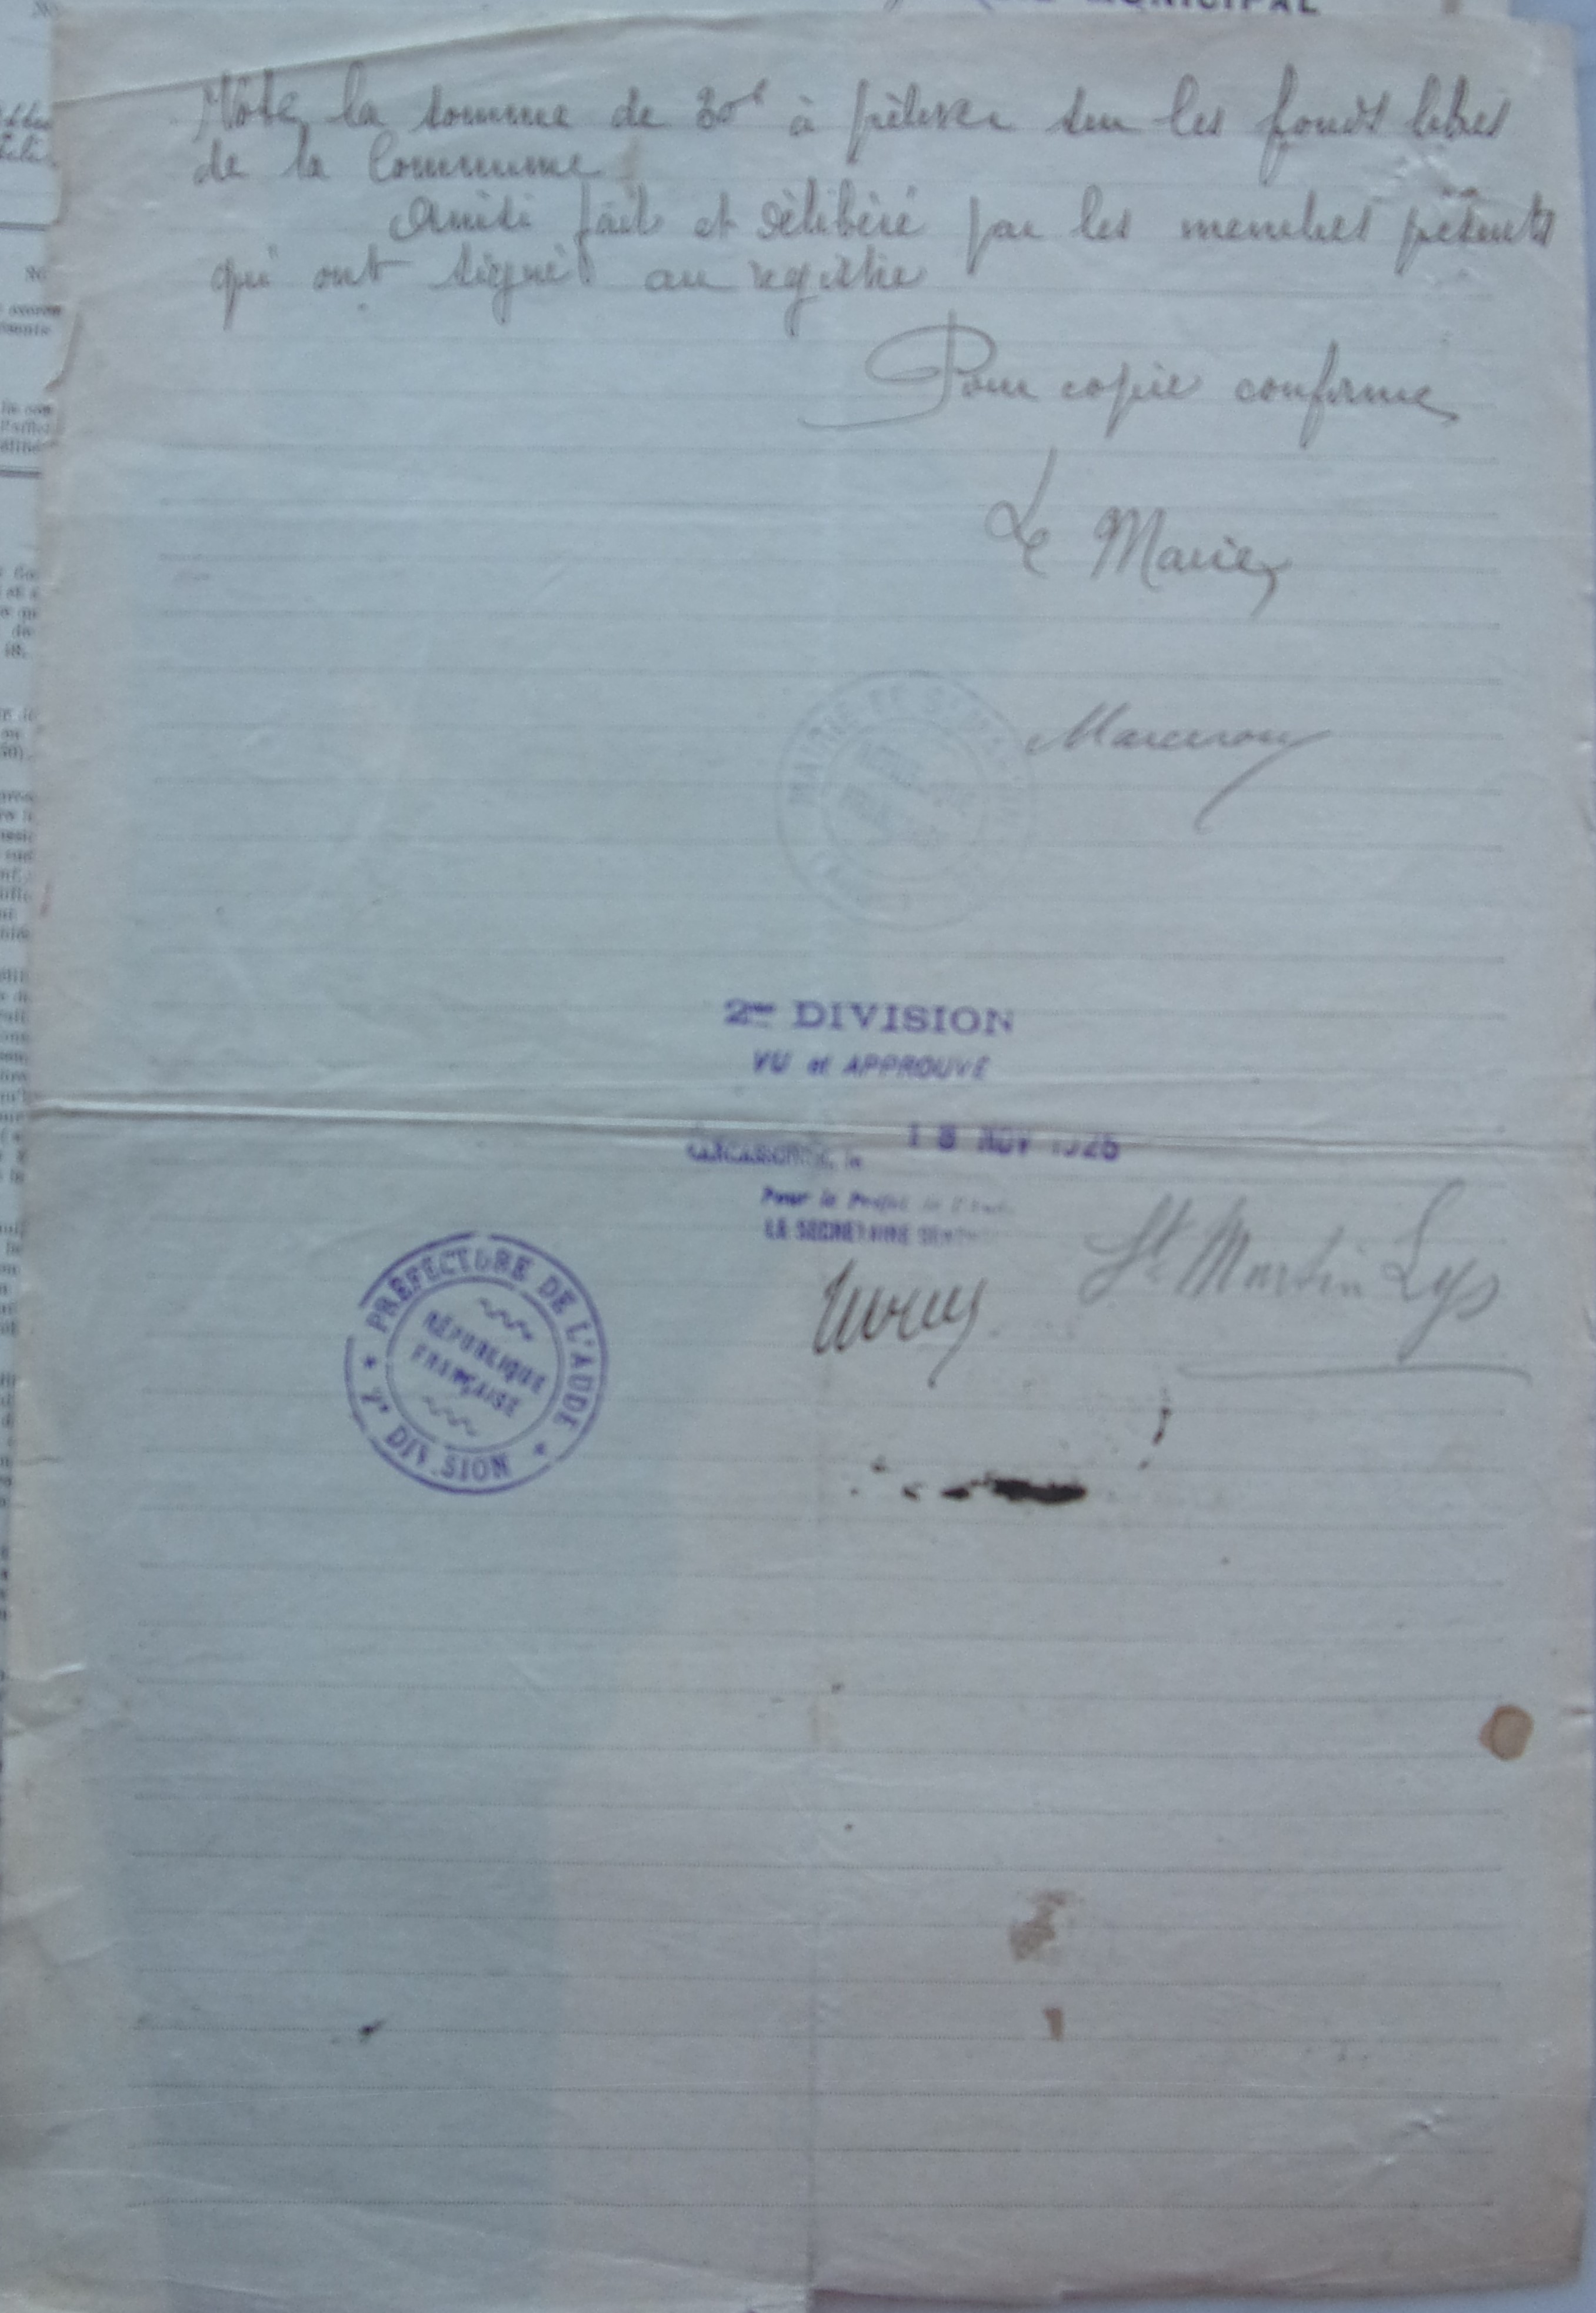 MUNICIPAL
Vote la somme de 30f à prélever sur les fonds libres
de la Commune
Ainsi fait et délibéré par les membres présents
qui ont signé au registre
Pour copie conforme
Le Maire,
MAIRIE DE St
2me DIVISION
VU et APPROUVÉ
CARCASSONNE, le 18 NOV 1926
Pour le Préfet de l'Aude
LE SECRÉTAIRE
St Martin Lys
PRÉFECTURE DE L'AUDE
RÉPUBLIQUE
FRANÇAISE
2e DIVISION